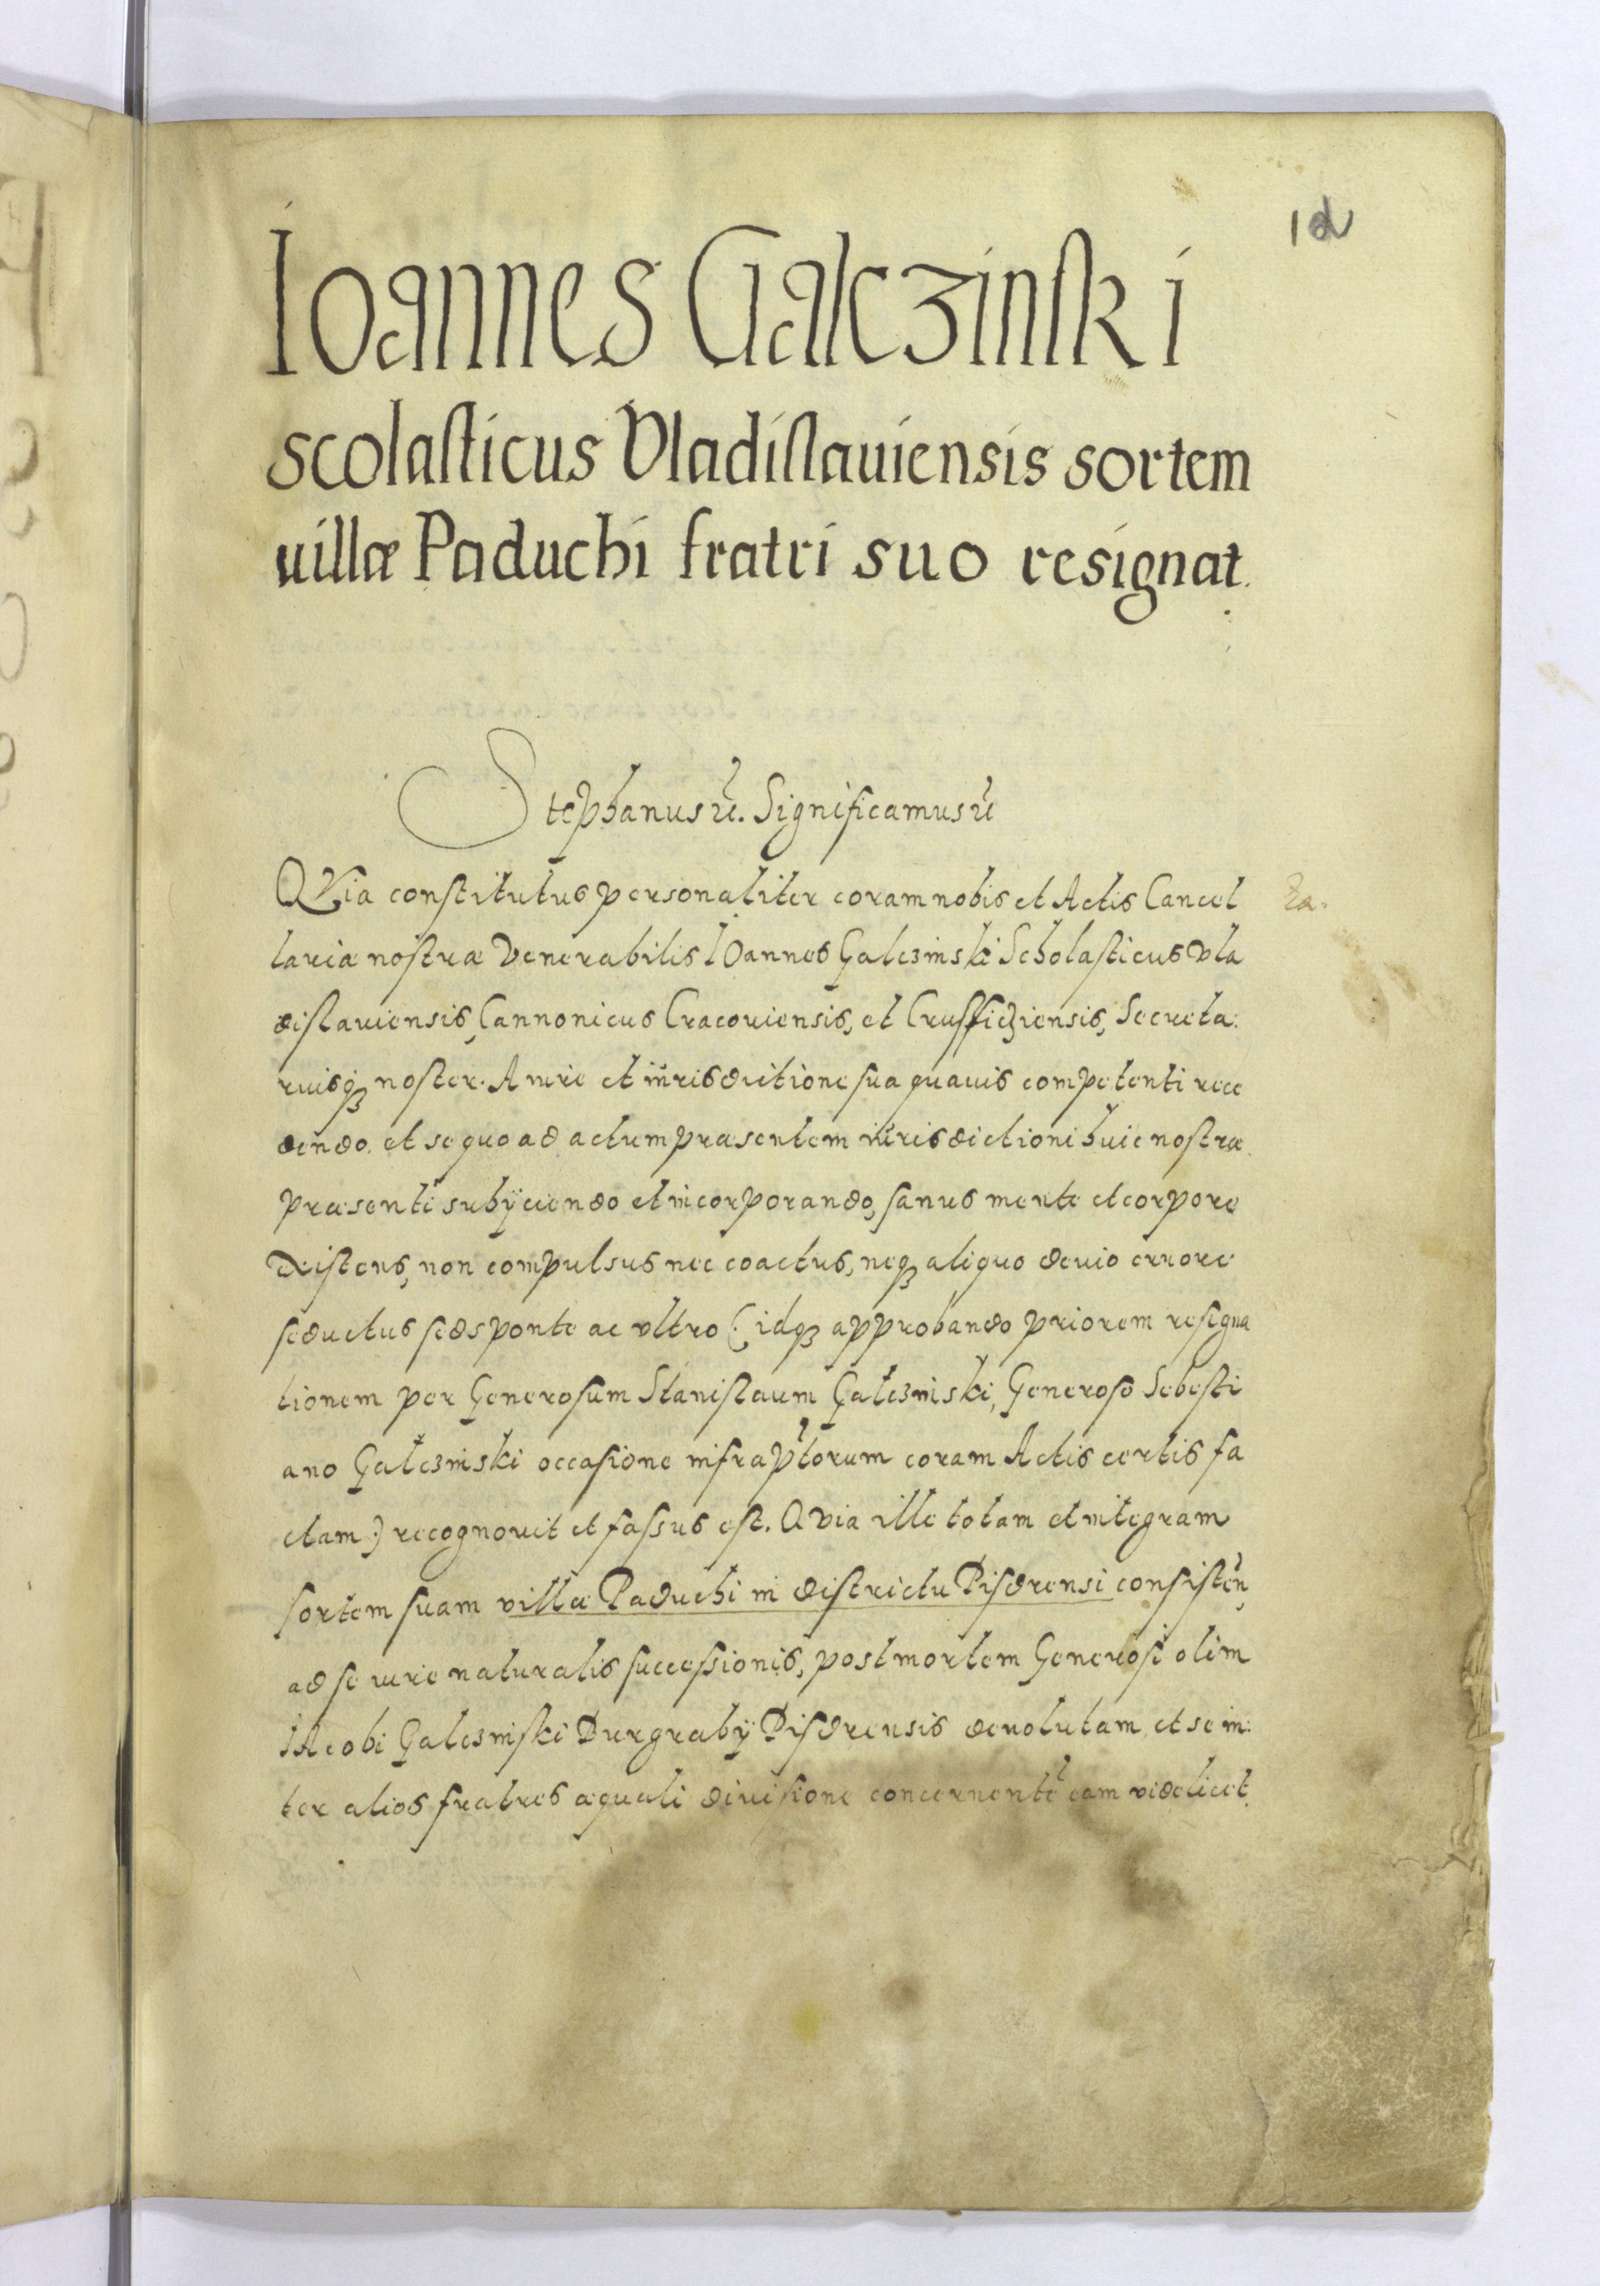 1
Ioannes Galczinski
scolasticus Vladislauiensis sortem
uillæ Paduchi fratri suo resignat.
Stephanus etc. Significamus etc
QVia constitutus personaliter coram nobis et Actis Cancel
lariæ nostræ Venerabilis IOannes Galczinski Scholasticus Vla
dislauiensis, Cannonicus Cracouiensis, et Crussicziensis, Secreta:
riusq3 noster. A iure et iurisdictione sua quauis competenti rece
dendo. et se quo ad actum præsentem iurisdictioni huic nostræ
præsenti subÿciendo et incorporando, sanus mente et corpore
existens, non compulsus nec coactus, neq3 aliquo deuio errore
seductus sed sponte ac vltro (: idq3 approbando priorem resigna
tionem per Generosum Stanislaum Galczinski, Generoso Sebesti
ano Galczinski occasione infraptorum coram Actis certis fa
ctam :) recognouit et fassus est. QVia ille totam et integram
sortem suam villæ Paduchi in districtu Pisdrensi consisten,
ad se iure naturalis successionis, post mortem Generosi olim
IAcobi Galczinski Burgrabÿ Pisdrensis deuolutam et se in:
ter alios fratres æquali diuisione concernente eam videlicet